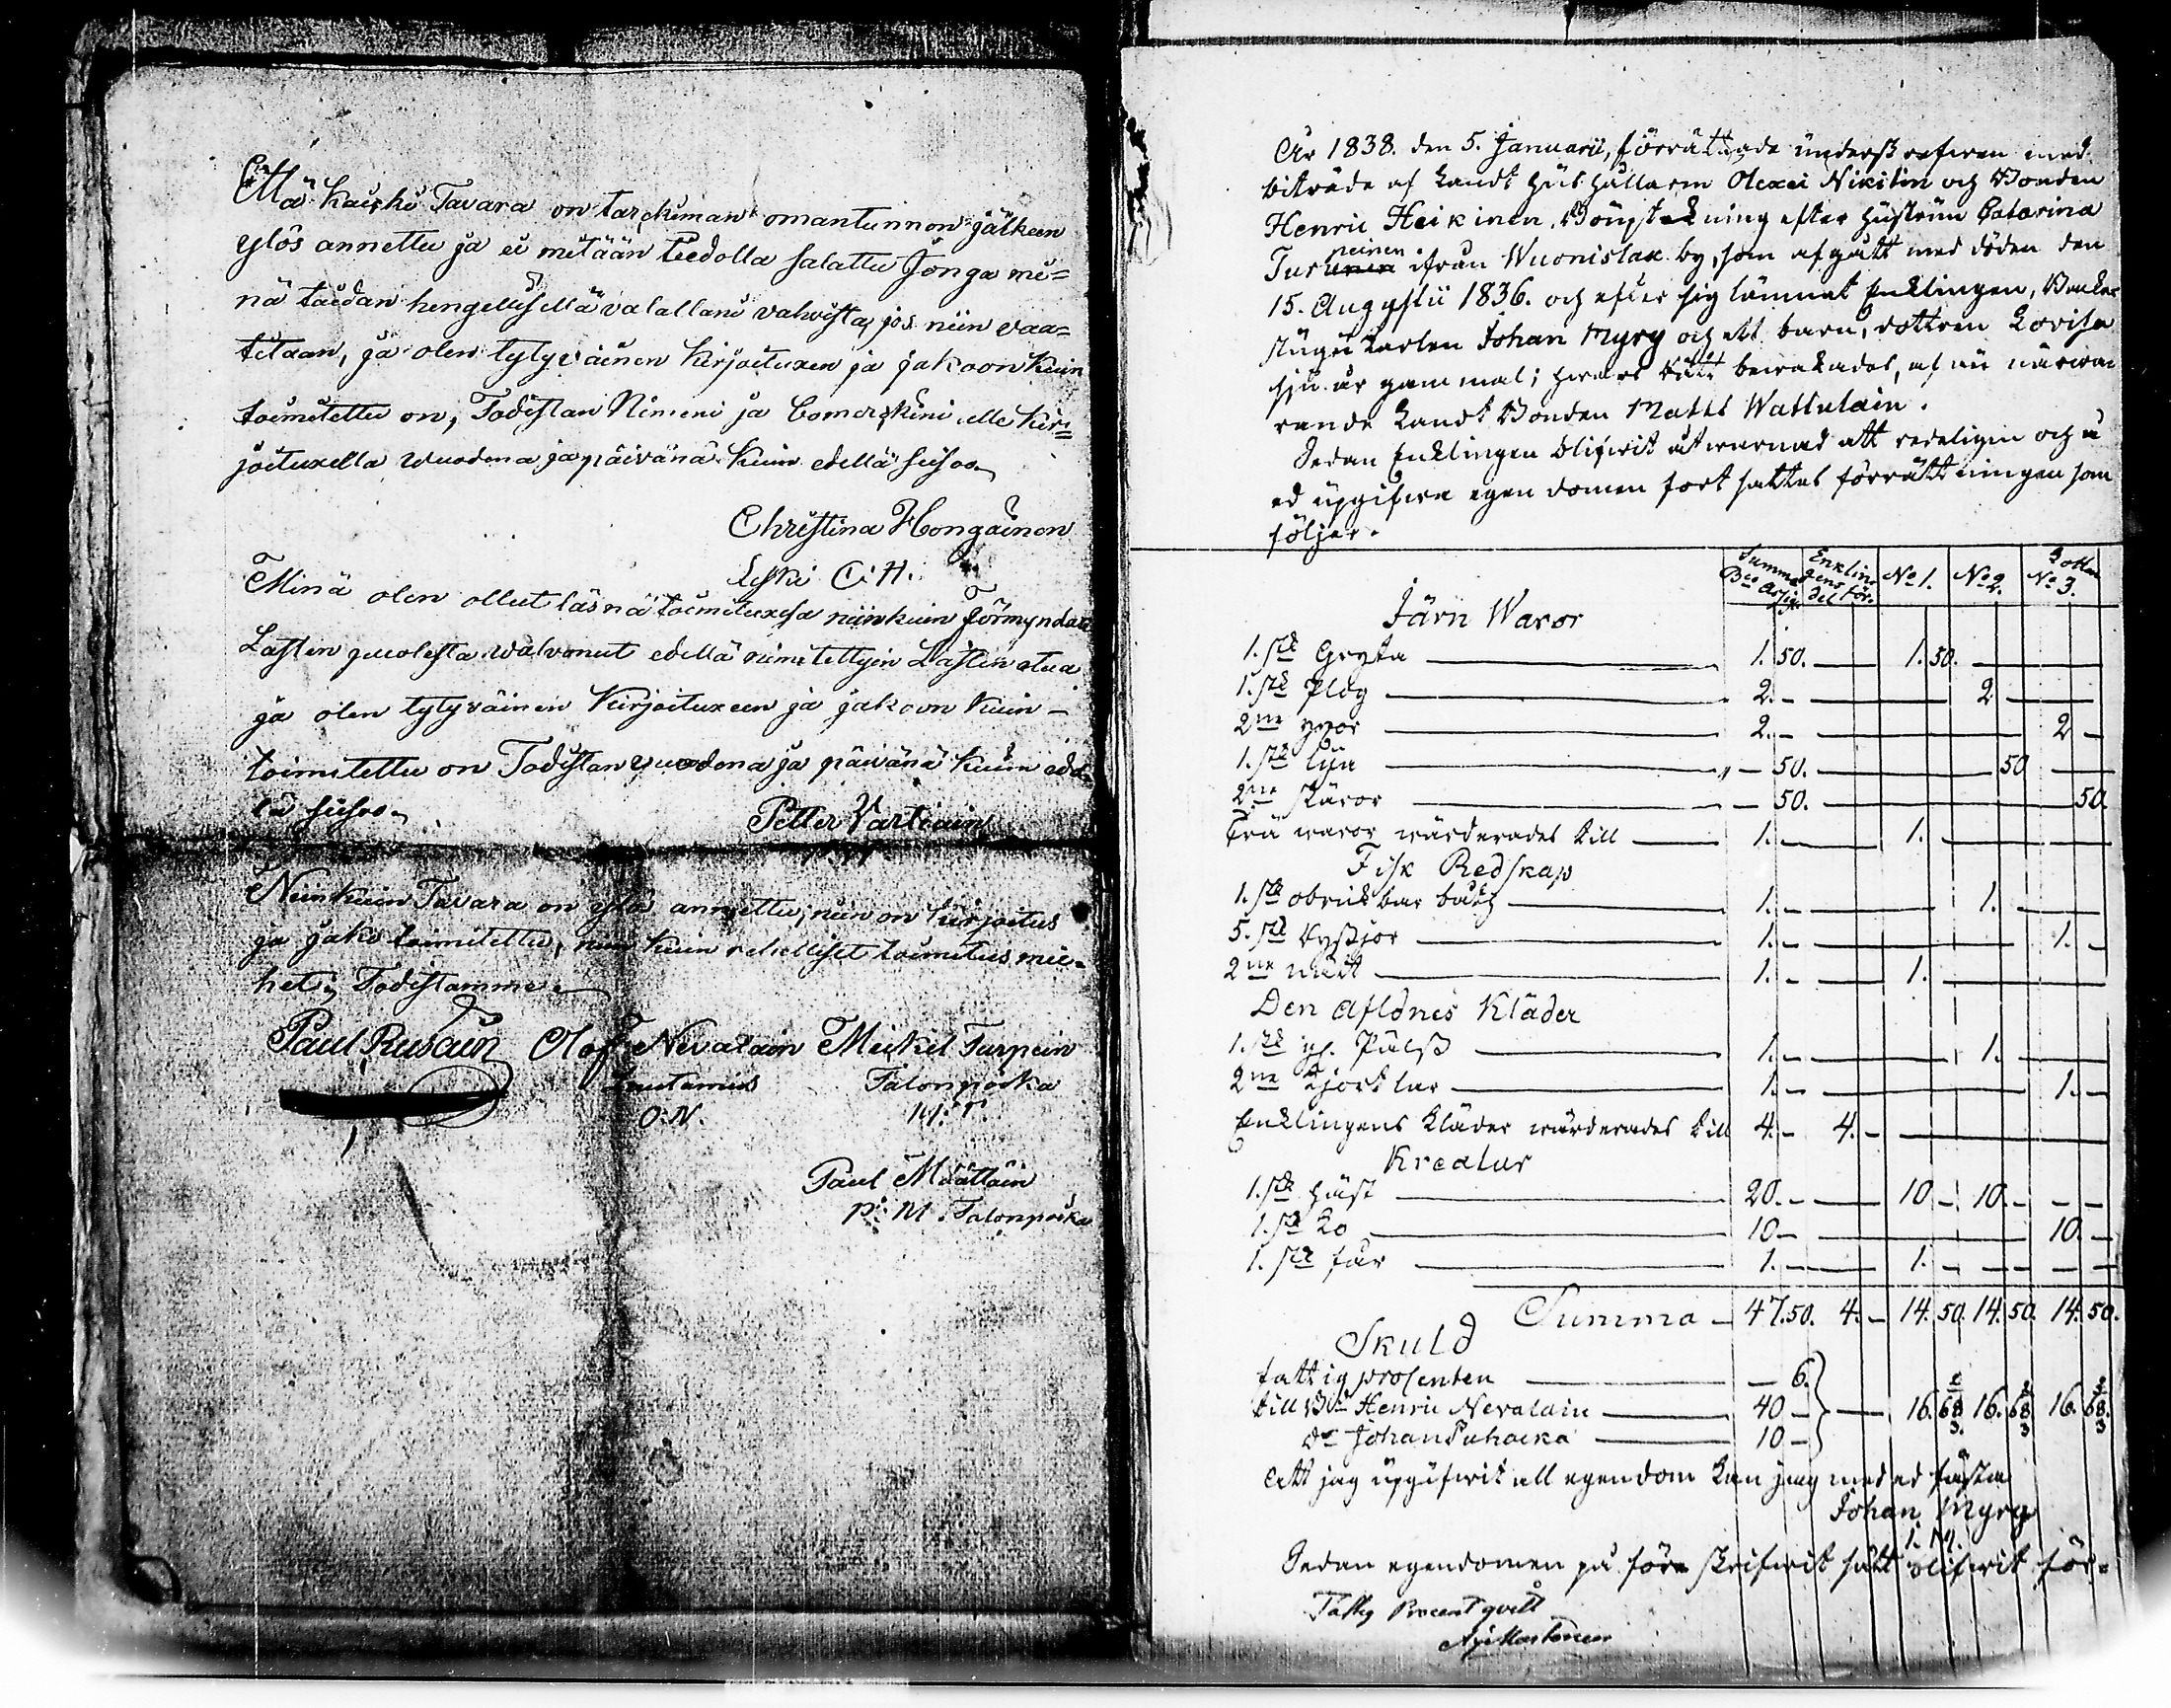 Että kaicki Tavara on tarckiman omantunnon jälkeen
ylös annettu ja ei mitään tiedolla salattu Jonga mi=
nä taidan hengellisellä valallani vahvista, jos niin vaa=
titaan, ja olen tytyväinen kirjoituxen ja jakoon kuin
toimitettu on, Todistan Nimeni ja bomerkini alle kir=
joituxella wuodena ja päivänä kuin edellä seisoo
Christina Hongainen
Leski C.H.
Minä olen ollut läsnä toimituxesa niinkuin Förmyndari
Lasten puolesta walvonut edellä nimitettyin Lasten etua
ja olen tytyväinen kirjoituxeen ja jakoon kuin
toimitettu on Todistan vuodena ja päivänä kuin edel=
lä seisoo
Petter Vartiain
Niinkuin Tavara on ylös annettu; niin on kirjoitus
ja jako toimitettu, niin kuin rehelliset toimitus mie=
het; Todistamme
Paul Rusain Olof Nevalain Meikil Turpein
Lautamies Talonpoika
O.N. M.T.
Paul Määttäin
P. M. Talonpoika
År 1838. den 5. Januarii, förrättade underskrefven med
biträde af Landt hushållarn Olexei Nikitin och Bonden
Henric Heikinen, Bouptekning efter hustrun Catarina
peinen
Turunen ifrån Wuonislax by, som afgått med döden den
15. Augustii 1836. och efter sig lämnat Enklingen, Backe
stugu karlen Johan Myry och ett barn, dottren Lovisa
sju år gammal; hvars rätt bevakades, af nu närva
rande Landt Bonden Matts Wattulain.
Sedan Enklingen blifvit åtvarnad att redeligen och u
ed upgifva egendomen fort sattes förrättningen som
följer.
Summa Bco Assig. Enklingens del för. No 1. No 2. Dotter No 3.
Järn Waror
1. st Gryta 1. 50. 1. 50.
1. st Plog 2. 2
2ne yxor 2. 2
1. st lya 50. 50
2ne skäror 50. 50.
Trä waror wärderades till 1. 1.
Fisk Redskap
1. st obrukbar båt 1. 1.
5. st ryssjor 1. 1.
2ne nät 1. 1.
Den Aflidnes Kläder
1. st Pälss 1. 1.
2ne kjortlar 1. 1.
Enklingens kläder wärderades till 4. 4.
Kreatur
1. st häst 20. 10 10.
1. st ko 10 10.
1. st får 1. 1.
Summa 47.50. 4. 14. 50. 14. 50. 14. 50.
Skuld
fattig prosenten 6.
till B. Henric Nevalain 40 16. 68 2/3 16. 68 2/3 16. 68 2/3
do Johan Puhacka 10
Att jag upgifvit all egendom kan jag med ed fästa
Johan Myry
I. M.
Sedan egendomen på före skrifvit sätt blifvit för=
Fattig Procent qvitt